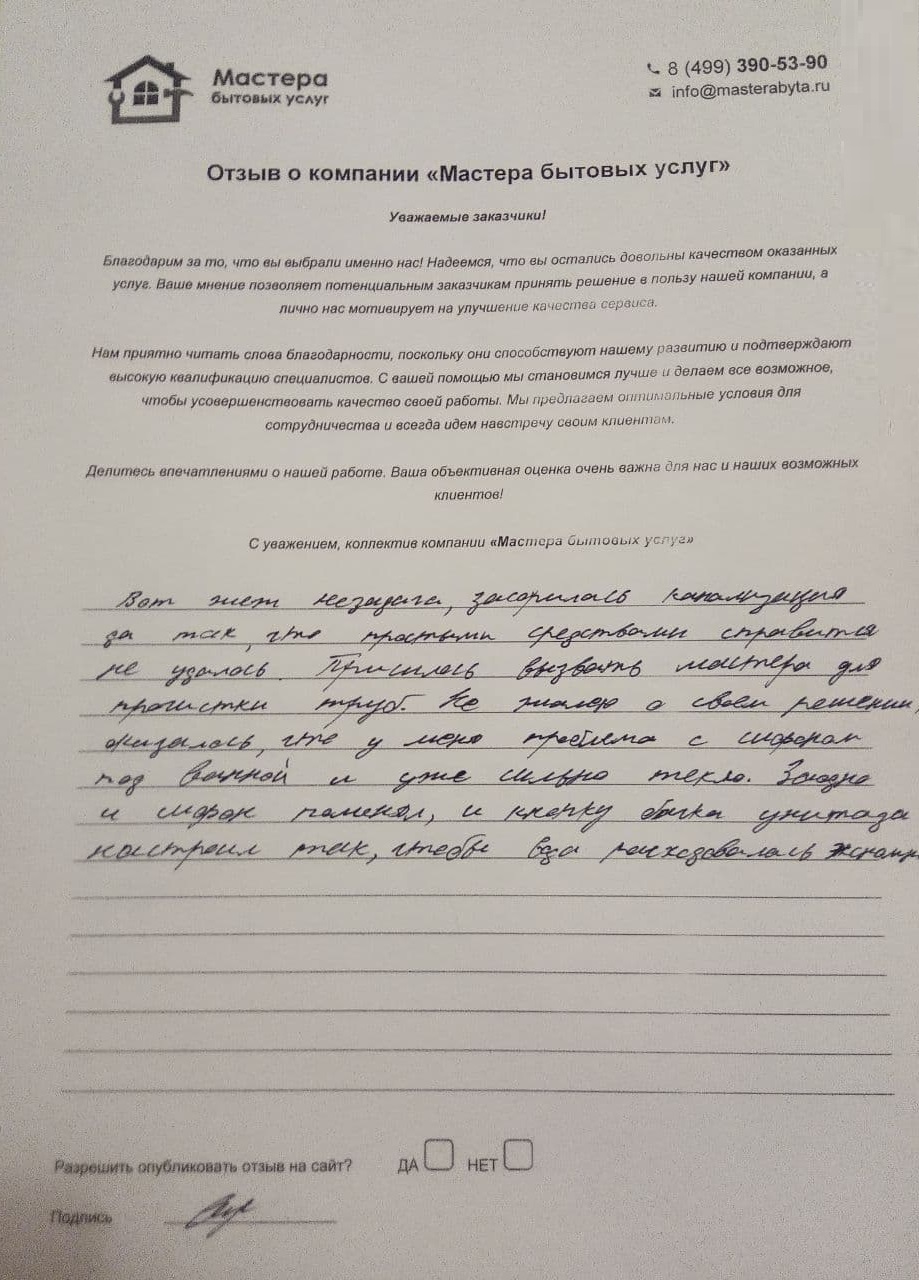 Мастера
бытовых услуг
8 (499) 390-53-90
info@masterabyta.ru
Отзыв о компании «Мастера бытовых услуг»
Уважаемые заказчики!
Благодарим за то, что вы выбрали именно нас! Надеемся, что вы остались довольны качеством оказанных
услуг. Ваше мнение позволяет потенциальным заказчикам принять решение в пользу нашей компании, а
лично нас мотивирует на улучшение качества сервиса.
Нам приятно читать слова благодарности, поскольку они способствуют нашему развитию и подтверждают
высокую квалификацию специалистов. С вашей помощью мы становимся лучше и делаем все возможное,
чтобы усовершенствовать качество своей работы. Мы предлагаем оптимальные условия для
сотрудничества и всегда идем навстречу своим клиентам.
Делитесь впечатлениями о нашей работе. Ваша объективная оценка очень важна для нас и наших возможных
клиентов!
С уважением, коллектив компании «Мастера бытовых услуг»
Вот незадача, засорилась канализация
да так, что простыми средствами справится
не удалось. Пришлось вызвать мастера для
прочистки труб. Не жалею о своем решении,
оказалось, что у меня проблема с сифоном
под ванной и уже сильно текло. Заодно
и сифон поменял, и кнопку бачка унитаза
настроил так, чтобы вода расходовалась
Разрешить опубликовать отзыв на сайт? ДА НЕТ
Подпись